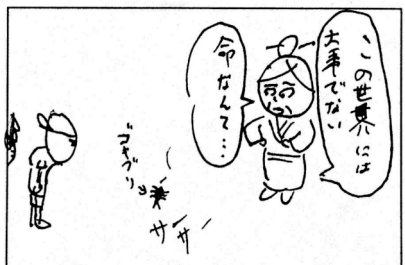 この世界には
大事でない
命なんて…
ゴキブリ
ササ